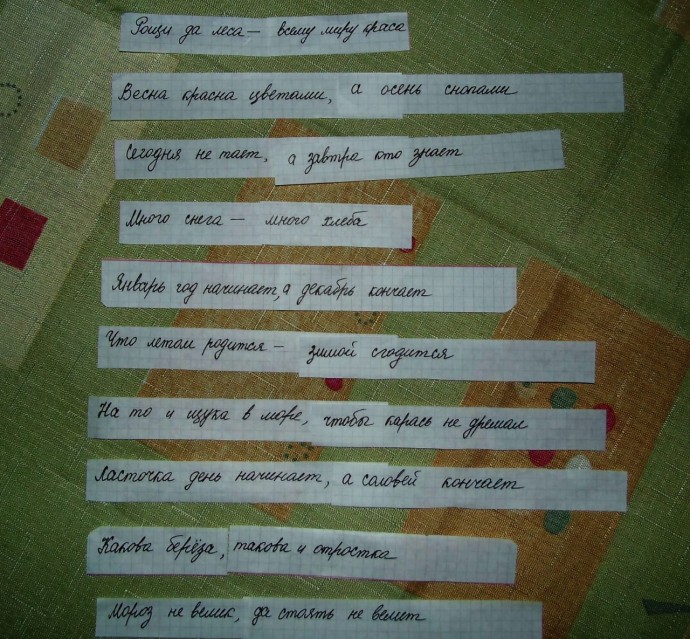 Рощи да леса — всему миру краса
Весна красна цветами, а осень снопами
Сегодня не тает, а завтра кто знает
Много снега — много хлеба
Январь год начинает, а декабрь кончает
Что летом родится — зимой сгодится
На то и щука в море, чтобы карась не дремал
Ласточка день начинает, а соловей кончает
Какова берёза, такова и отростка
Мороз не велик, да стоять не велит